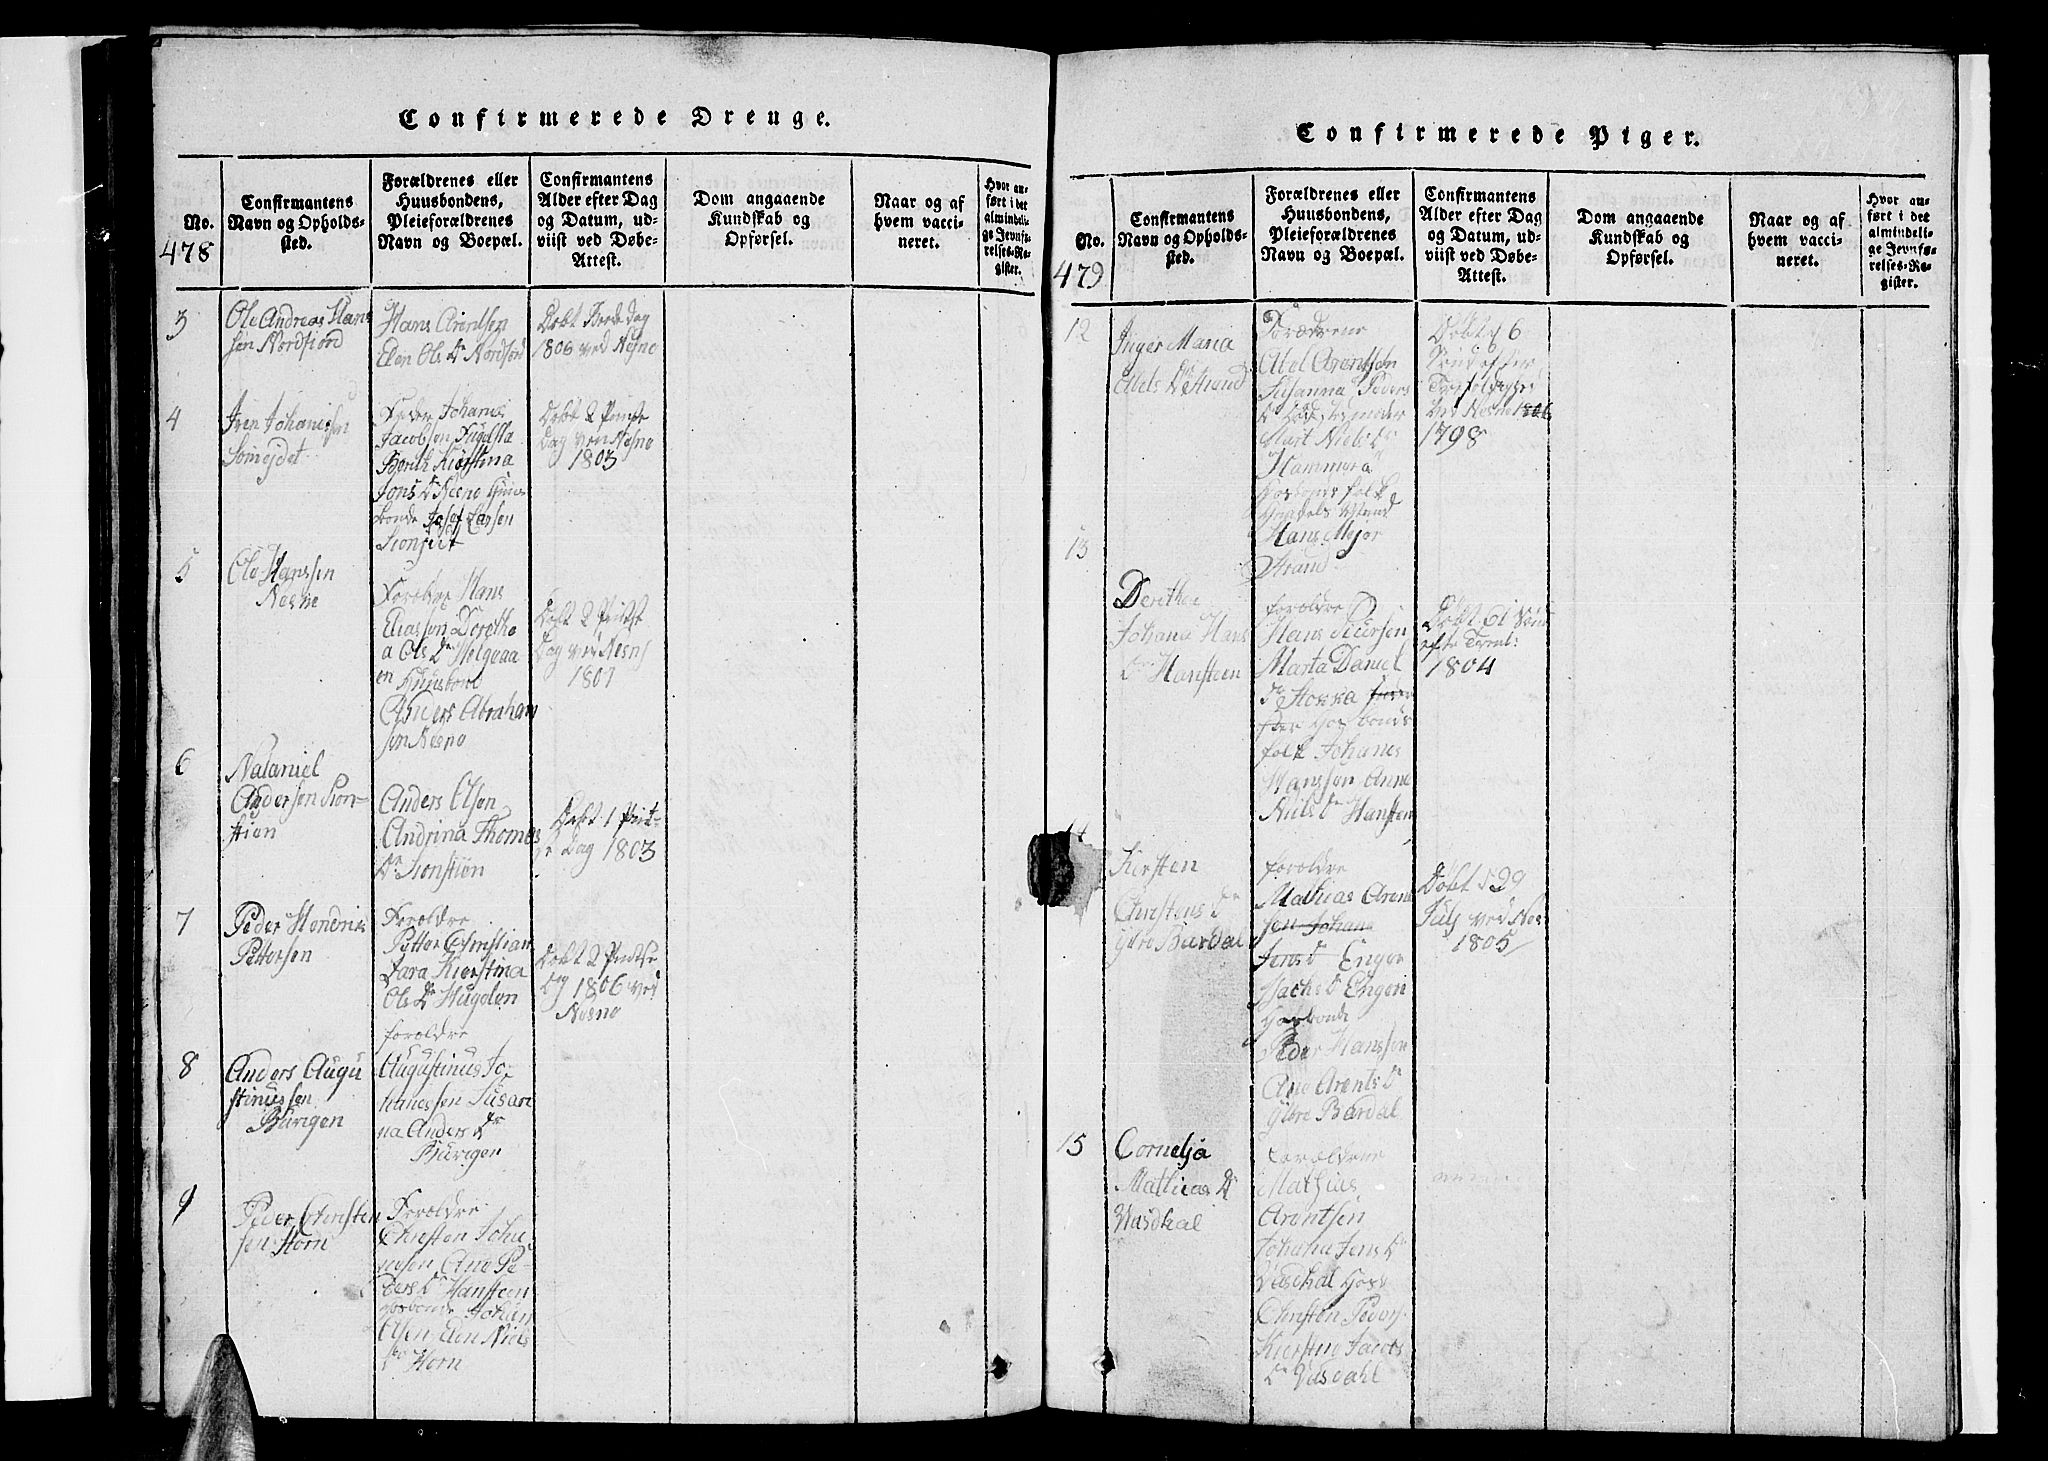 Confirmerede Drenge.
No.
478
Confirmantens
Navn og Opholds-
sted.
Forældrenes eller
Huusbondens,
Pleieforældrenes
Navn og Boepæl.
Confirmantens
Alder efter Dag
og Datum, ud-
viist ved Døbe-
Attest.
Dom angaaende
Kundskab og
Opførsel.
Naar og af
hvem vacci-
neret.
Hvor an-
ført i det
almindeli-
ge Jevnfø-
relses-Re-
gister.
3
Ole Andreas Hans
sen Nordfiord
Hans Arentsen
Elen Ols Dr
Døbt
1806 ved Nesne
4
Iver Johanessen
Johanes
Jacobsen
Berith Kierstina
Jons Dr Nesne
bonde Josef Larsen
Døbt 2 Pintse
Dag ved Nesne
1803
5
Ole Hanssen
Nesne
Foreldre Hans
Eliassen Dorethe
a Ols Dr
en Huusbond
Anders Abraham
sen Nesne
Døbt 2 Pintse
Dag ved Nesne
1801
6
Nataniel
Andersen Sion-
stien
Anders Olsen
Andrina Thomes
Dr Sionstien
Døbt 1 Pint-
se Dag 1803
7
Peder Hendrik
Pettersen
Foroldre
Petter Christian
Sara Kierstina
Ols Dr Hugelen
Døbt 2 Pintse
Dag 1806 ved
Nesne
8
Anders Augu
stinussen
Burigen
foroldre
Augustinus Jo-
hanessen Susan
na Anders Dr
Burigen
9
Peder Christen
sen Horn
Foroldre
Christen Joha
nesen Ane Pe-
ders Dr Hansteen
Hosbonde Johan
Olsen Elen Niels
Dr Horn
Confirmerede Piger.
No.
479
Confirmantens
Navn og Opholds-
sted.
Forældrenes eller
Huusbondens,
Pleieforældrenes
Navn og Boepæl.
Confirmantens
Alder efter Dag
og Datum, ud-
viist ved Døbe-
Attest.
Dom angaaende
Kundskab og
Opførsel.
Naar og af
hvem vacci-
neret.
Hvor an-
ført i det
almindeli-
ge Jevnfø-
relses-Re-
gister.
12
Inger Maria
Abels Dr Strand
Forældrene
Abel Arentsen
Susanna Peders
Dr
Mart Niels Dr
Hammera
Hosbonds folk
Hans Mejer
Strand
Døbt d 6
Sønd efter
Trefoldighed
ved Nesne 1806
1798
13
Derethea
Johana Hans
Dr Hansteen
foroldre
Hans Siursen
Marta Daniel
Dr Stokka
Hosbonds
folk Johanes
Hanssen Anne
Niels Dr Hansteen
Døbt 6 Sønd
efte Trenit:
1804
14
Kiersten
Christens Dr
Ytre Bardal
foroldre
Mathias Arent
sen Johana
Jens Dr Enger
Isachs Dr Engen
Hosbonde
Peder Hanssen
Ane Arents Dr
Ytre Bardal
Døbt d 29
Juls ved Nes-
1805
15
Cornelja
Mathias Dr
Vasdhal
Forældrene
Mathias
Arentsen
Johana Jens Dr
Vasdhal Hosb
Christen Peders
Kierstina Jacobs
Dr Vasdahl